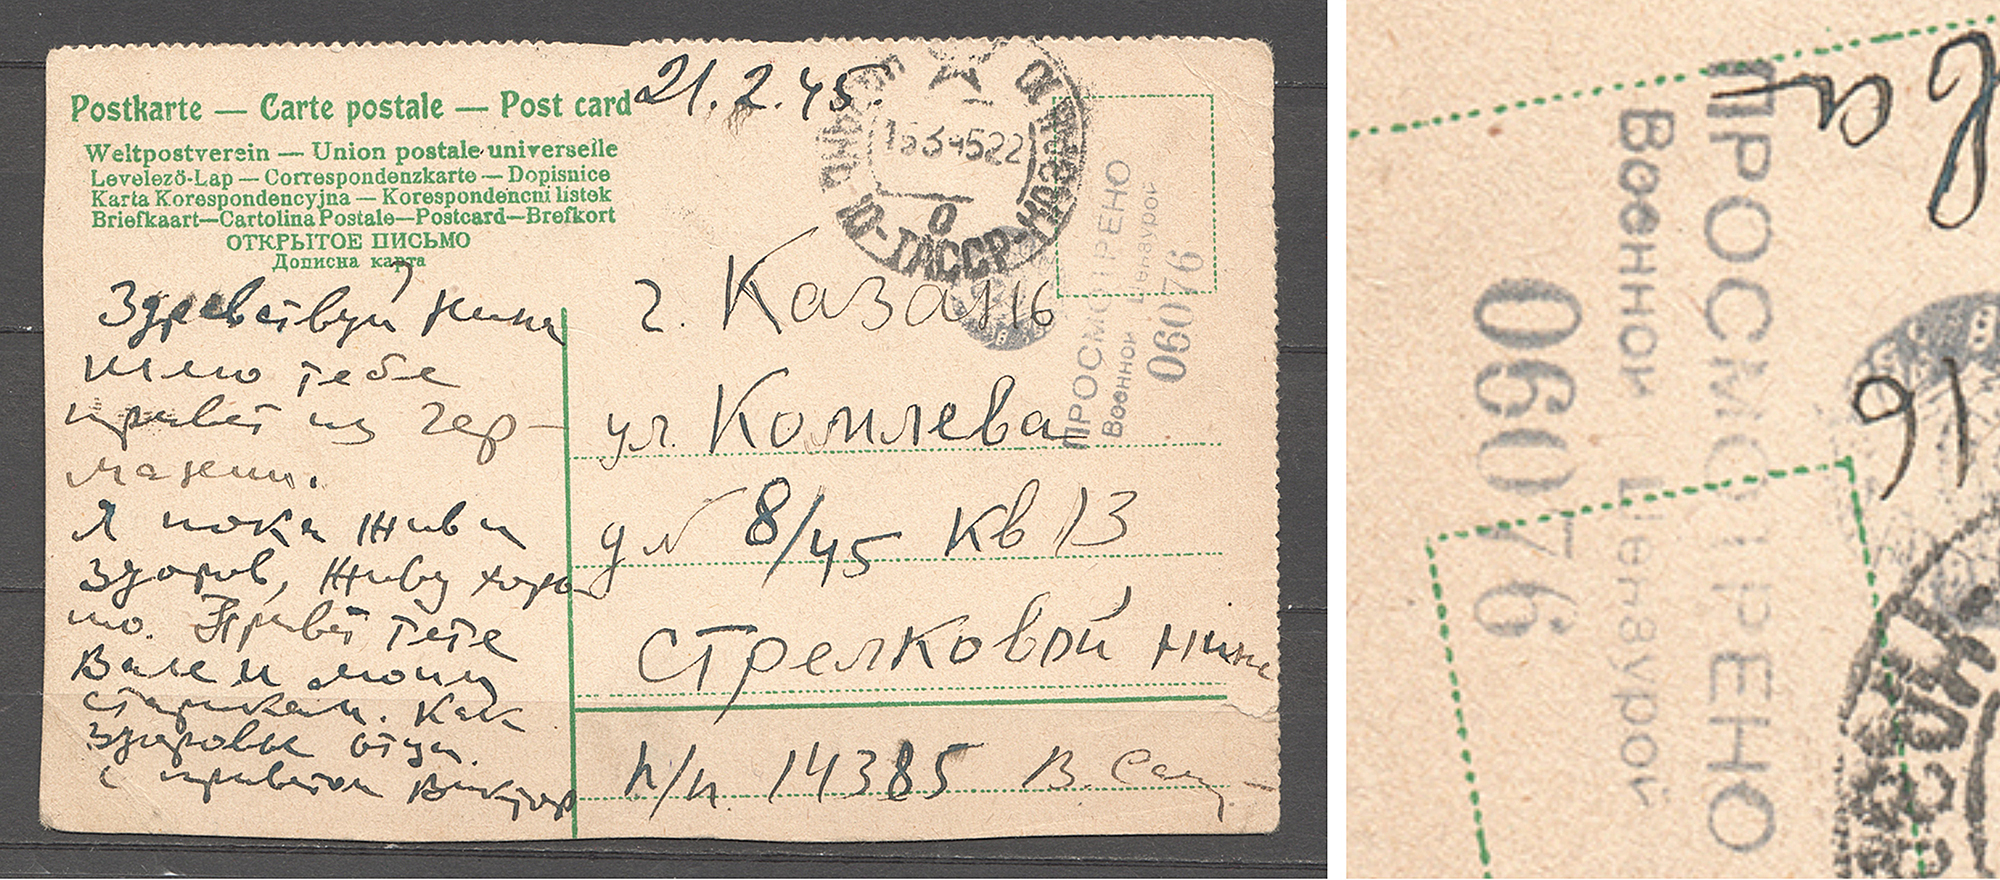 Postkarte — Carte postale — Post card
21.2.45.
Weltpostverein — Union postale universelle
Levelező-Lap — Correspondenzkarte — Dopisnice
Karta Korespondencyjna — Korespondencni listek
Briefkaart—Cartolina Postale—Postcard—Brefkort
ОТКРЫТОЕ ПИСЬМО
Дописна карта
1534522
ТАССР
ПРОСМОТРЕНО
Военной Цензурой
06076
Здравствуй Нина
шлю тебе
привет из Гер-
мании.
Я пока жив и
здоров, живу хоро-
шо. Привет тете
Вале и моим
старикам. Как
здоровье отца.
С приветом Виктор
г. Казань
ул. Комлева
д № 8/45 кв 13
Стрелковой Нине
п/п. 14385 В.
ПРОСМОТРЕНО
Военной Цензурой
06076
ва